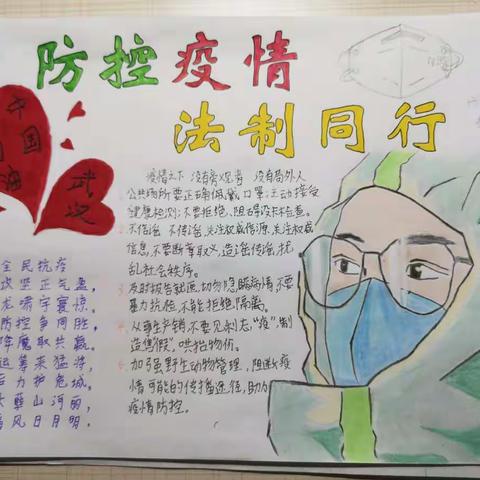 防控疫情
法制同行
中国
武汉
疫情之下 没有旁观者 没有局外人
公共场所要正确佩戴口罩;主动接受
健康检测;不要拒绝、阻碍设卡检查。
不信谣 不传谣,关注权威信源,关注权威
信息,不要断章取义、造谣传谣、扰
乱社会秩序。
及时报告轨迹,切勿隐瞒病情,不要
暴力抗检,不能拒绝隔离。
从事生产销,不要见利忘"疫",制
造售假、哄抬物价。
加强野生动物管理,阻断疫
情可能的传播途径,助力
疫情防控。
全民抗疫
攻坚正气盈,
龙啸宇寰惊。
防控争同胜,
降魔取共赢。
运筹来猛将,
后力护危城。
山河丽,
风日月明。